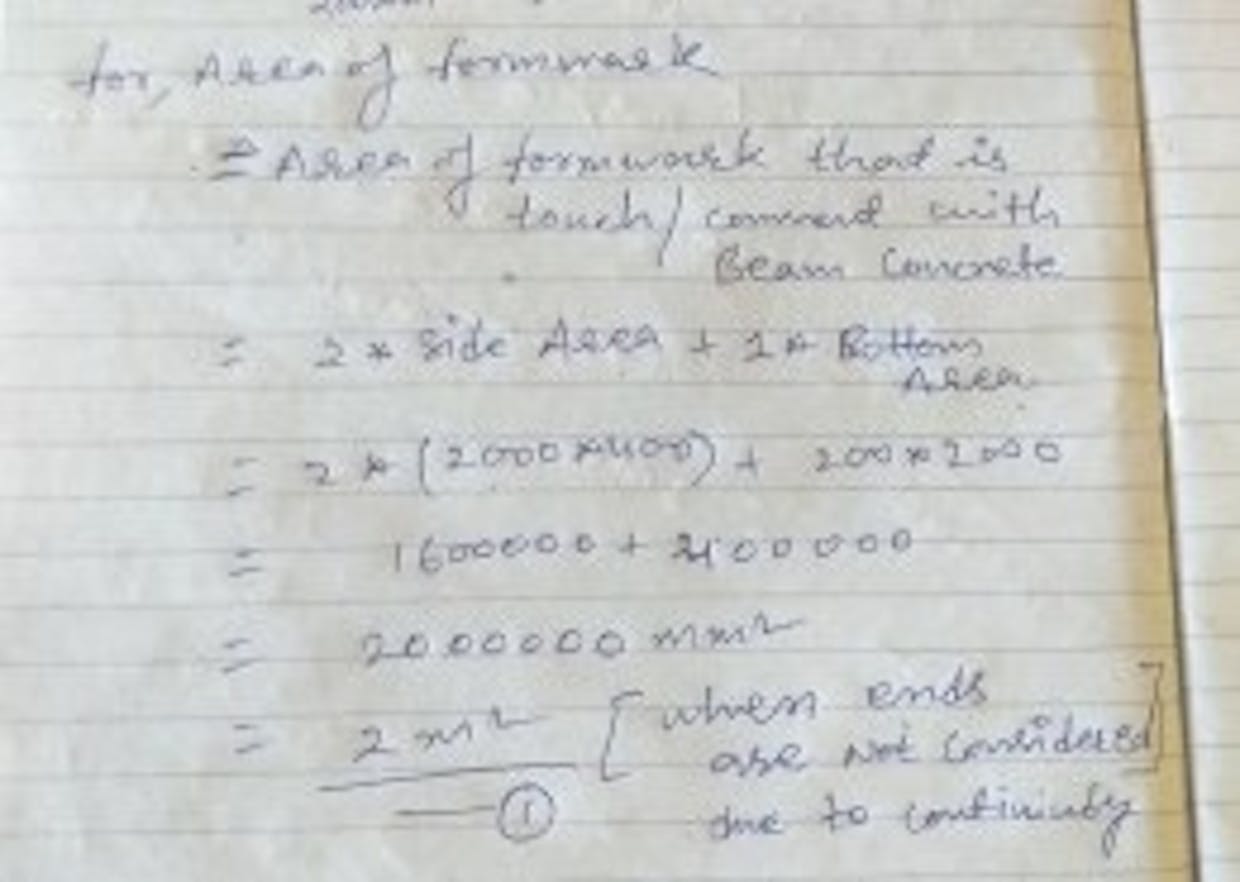 for, Area of formwork
= Area of formwork that is
touch/ connect with
Beam Concrete
= 2 * Side Area + 1 * Bottom
Area
= 2 * (2000 * 400) + 200 * 2000
= 1600000 + 400000
= 2000000 mm²
= 2 m² [when ends
are Not Considered]
① due to continuity